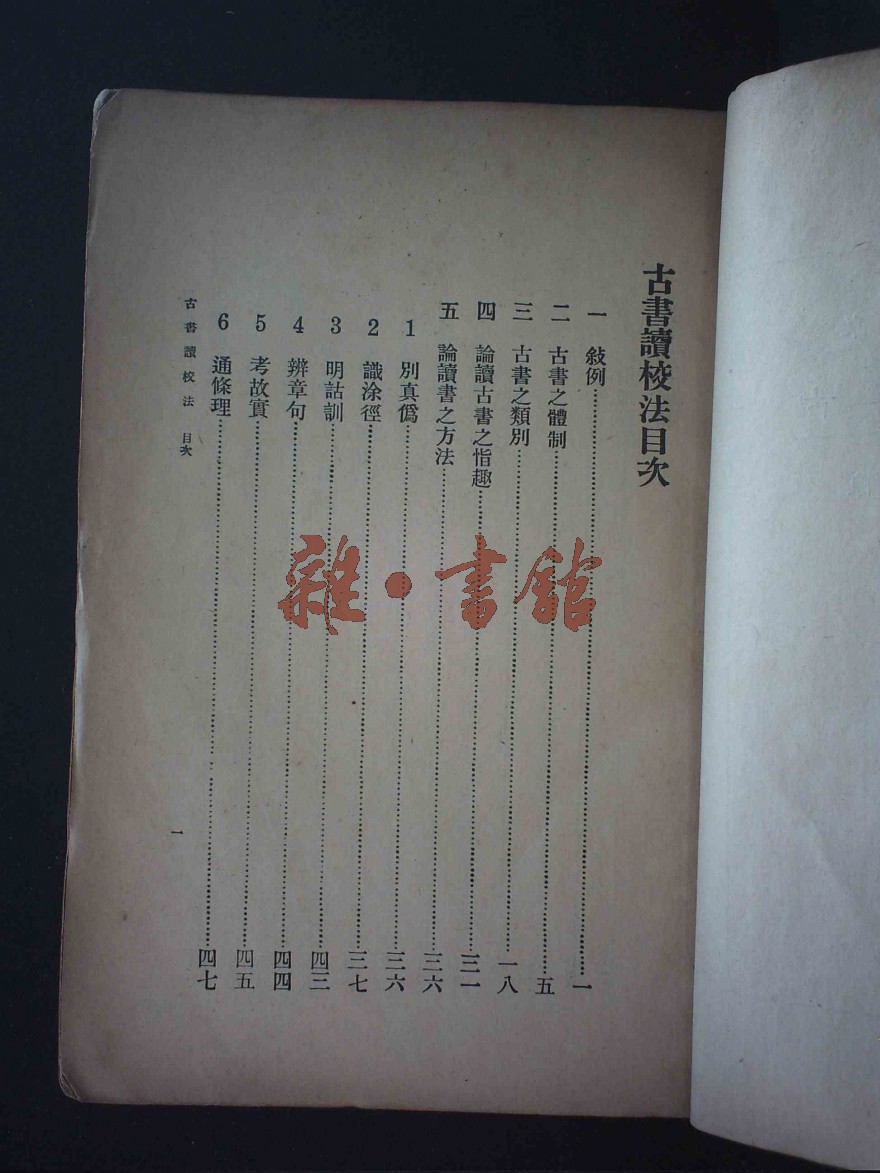 古書讀校法目次
一 敍例………一
二 古書之體制………五
三 古書之類別………一八
四 論讀古書之恉趣………三一
五 論讀書之方法………三六
1 別真僞………三六
2 識涂徑………三七
3 明詁訓………四三
4 辨章句………四四
5 考故實………四五
6 通條理………四七
古書讀校法 目次
一
雜·書館